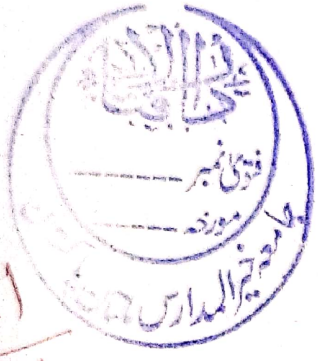 دارالافتاء
فتویٰ نمبر
مورخہ
جامعہ خیر المدارس